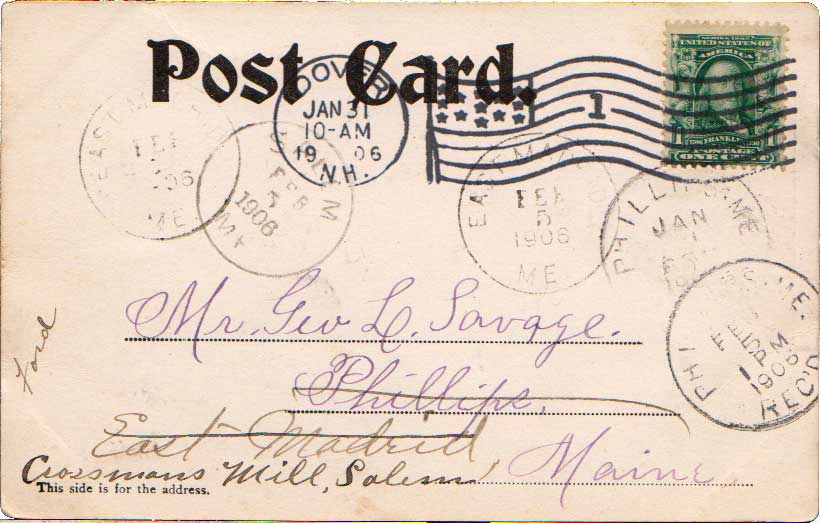 Post Card.
SERIES 1902
UNITED STATES OF
AMERICA
1 FRANKLIN
POSTAGE
ONE CENT
DOVER
JAN 31
10-AM
19 06
N.H.
1
EAST MADRID
FEB
1906
ME.
SALEM
FEB
5
1906
ME
EAST MADRID
FEB
5
1906
ME
PHILLIPS. ME
JAN
PHILLIPS. ME.
FEB
1 PM
1906
REC'D
Mr. Geo L. Savage.
Phillips,
East Madrid
Crossmans Mill, Salem, Maine.
This side is for the address.
Ford